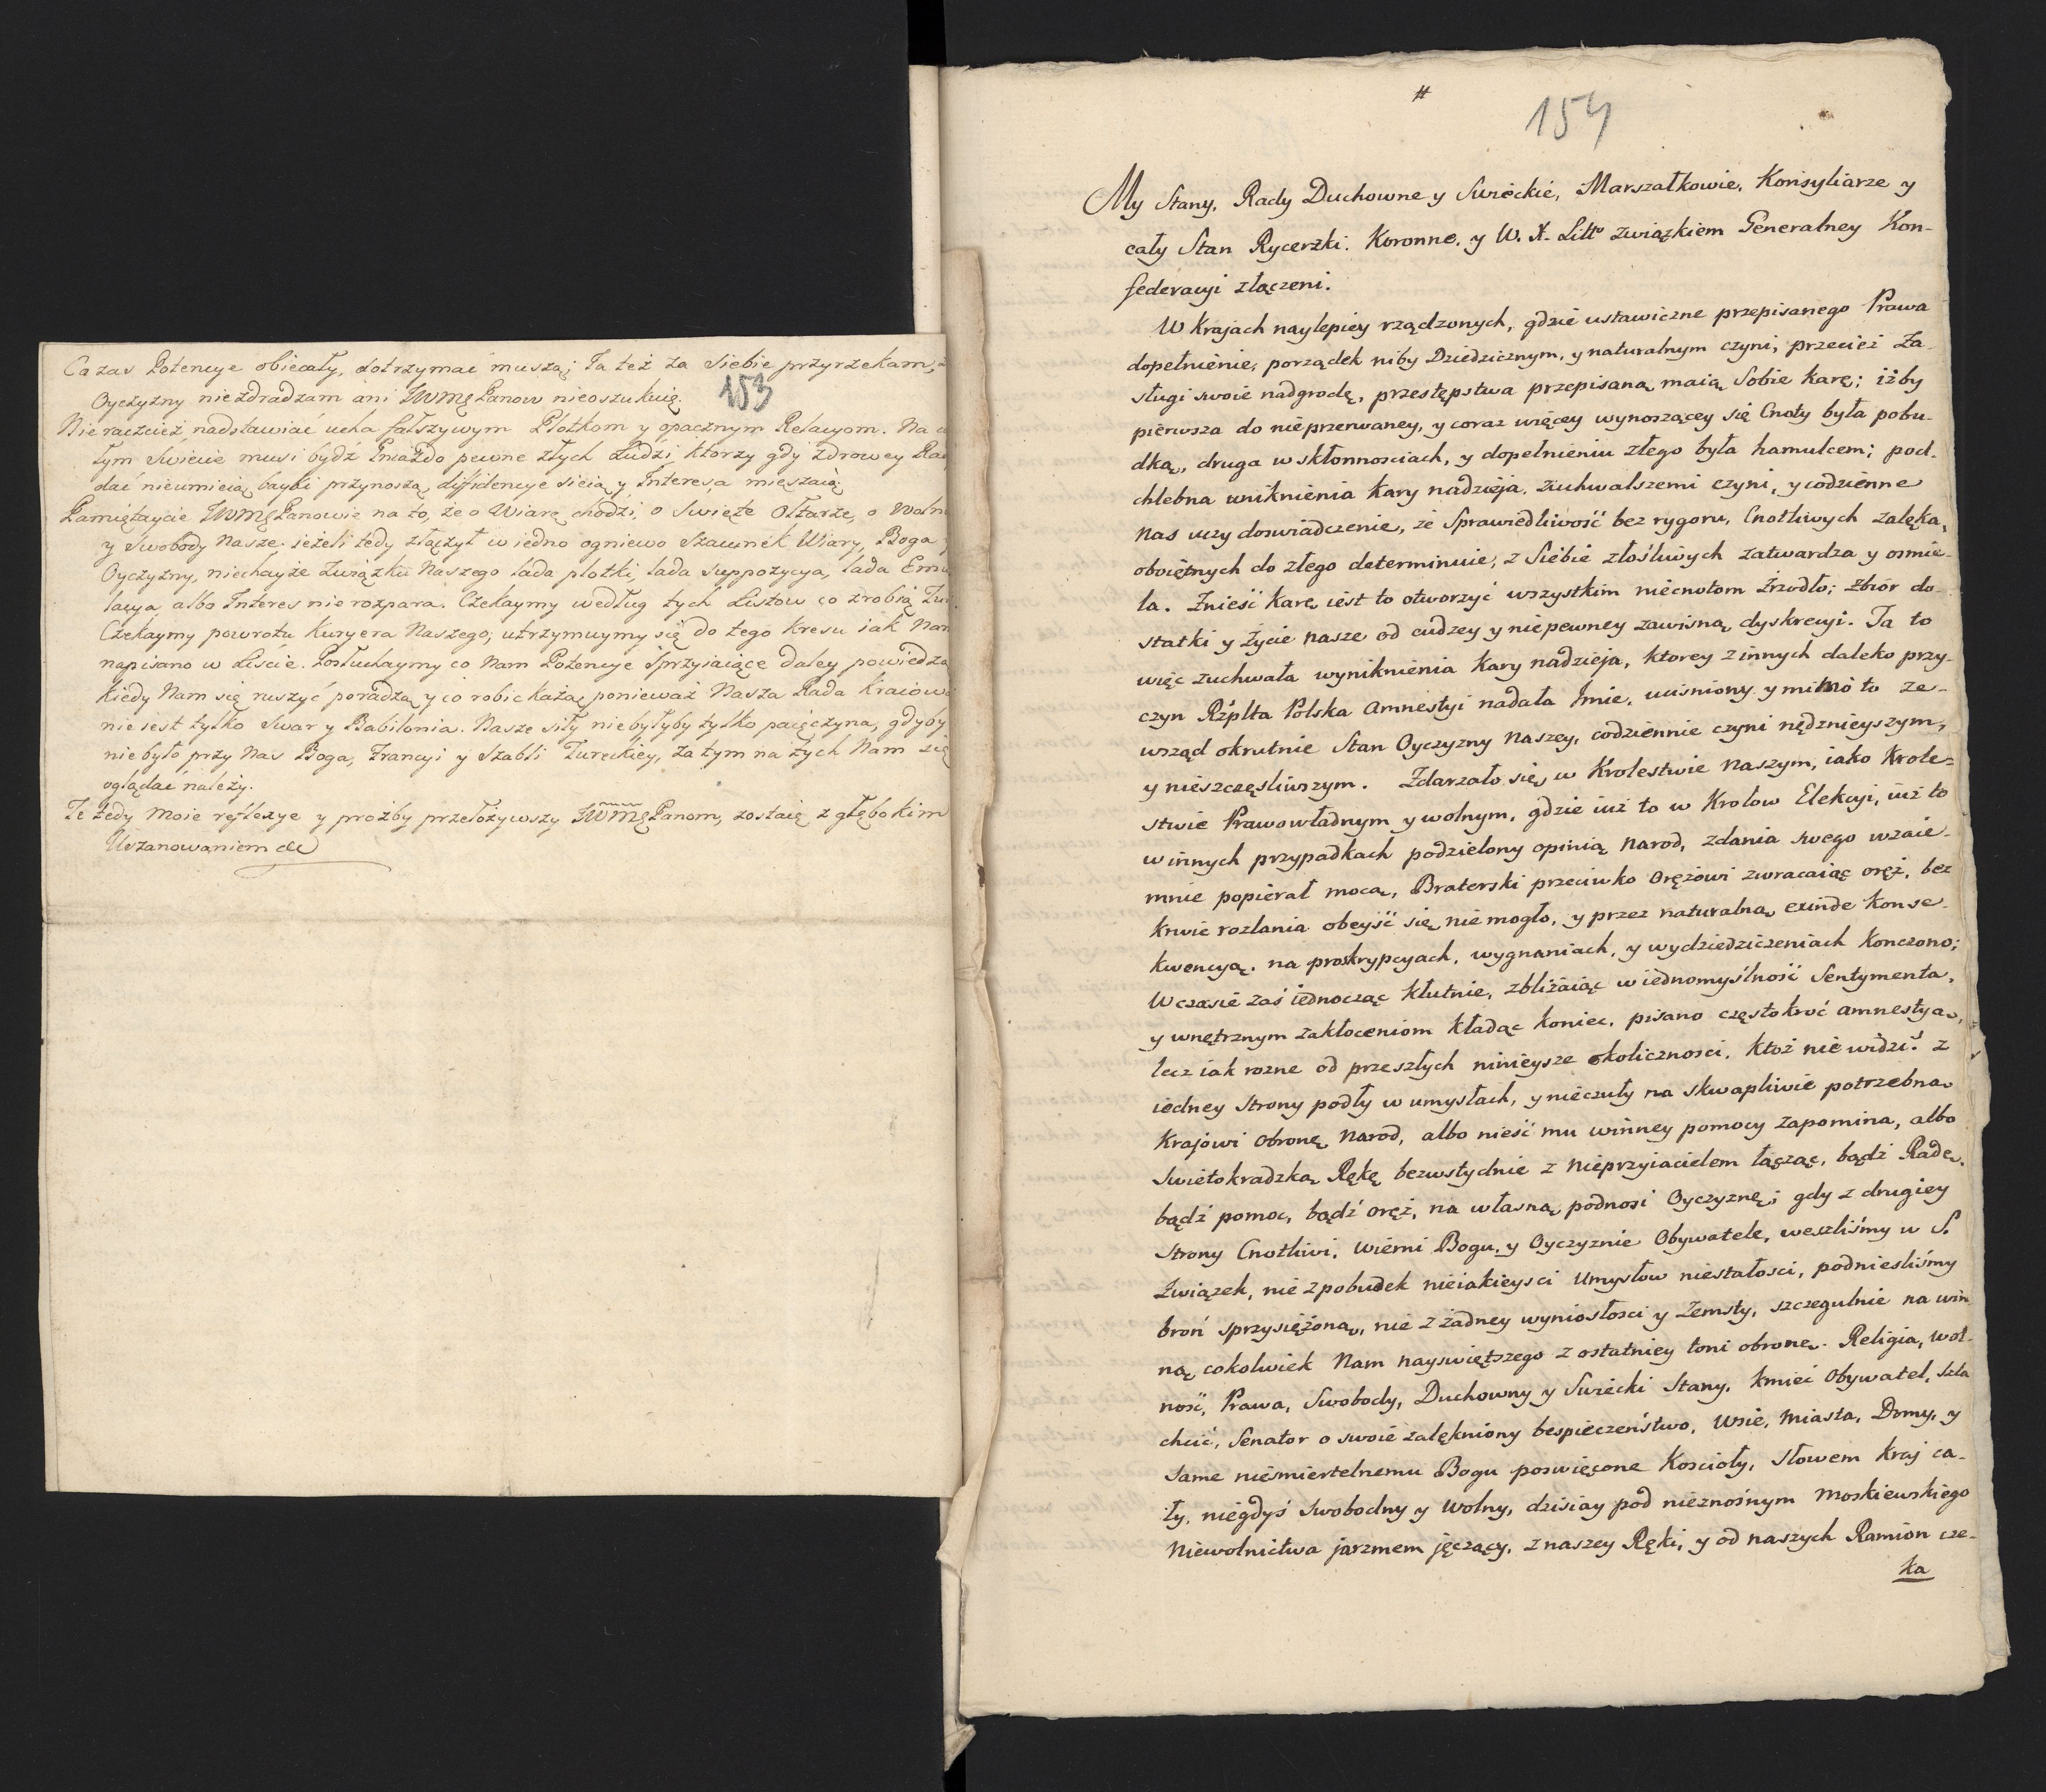 Co zas Potencye obiecały, dotrzymać muszą; Ja też za Siebie przyrzekam,
Oyczyzny niezdradzam ani JWMę Panow nieoszukuię.
153
Nie raczcież nadstawiać ucha fałszywym Plotkom y opacznym Relacyom. Na
tym Swiecie musi bydź Gniazdo pewne złych Ludzi ktorzy gdy zdrowey
dać nieumieią bayki przynoszą, diffidencye sieią y Interesa mięszaią
Pamiętaycie JWMę Panowie na to, że o Wiarę chodzi, o Swięte Ołtarze, o
y Swobody Nasze. ieżeli tedy złączył w iedno ogniewo Szacunek Wiary, Boga
Oyczyzny, niechayże Związku Naszego lada plotki, lada Suppozycya, lada
lacya, albo Interes nie rozpara. Czekaymy według tych Listow co zrobią
Czekaymy powrotu Kuryera Naszego; utrzymuymy się do tego kresu iak
napisano w Liście. Posłuchaymy co Nam Potencye Sprzyiaiące daley
kiedy Nam się ruszyć poradzą, y co robić każą, ponieważ Nasza Rada
nie iest tylko Swar y Babilonia. Nasze siły niebyłyby tylko paięczyna, gdyby
nie było przy Nas Boga, Francyi y Szabli Tureckiey, za tym na tych Nam się
oglądać należy.
Te tedy moie reflexye y prozby przełożywszy JWMę Panom, zostaię z głębokim
Uszanowaniem
#
154
My Stany, Rady Duchowne y Swieckie, Marszałkowie, Konsyliarze y
cały Stan Rycerzki, Koronne, y W. X. Litto związkiem Generalney Kon-
federacyi złączeni.
W Krajach naylepiey rządzonych, gdzie ustawiczne przepisanego Prawa
dopełnienie, porządek niby Dziedzicznym, y naturalnym czyni, przecież Za-
sługi swoie nadgrodę, przestępstwa przepisaną maią Sobie Karę; iżby
pierwsza do nieprzerwaney, y coraz więcey wynoszącey się Cnoty była pobu-
dką, druga w skłonnosciach, y dopełnieniu złego była hamulcem; pod-
chlebna uniknienia Kary nadzieja, zuchwalszemi czyni, y codzienne
Nas uczy doswiadczenie, że Sprawiedliwość bez rygoru, Cnotliwych zalęka,
oboiętnych do złego determinuie, z Siebie złośliwych zatwardza y osmie-
la. Znieść Karę iest to otworzyć wszystkim niecnotom Zrzodło; Zbior do-
statki y życie nasze od cudzey y niepewney zawisną dyskrecyi. Ta to
więc zuchwała wyniknienia Kary nadzieja, ktorey z innych daleko przy-
czyn Rzplta Polska Amnestyi nadała Imie, ucisniony y mimo to ze-
wsząd okrutnie Stan Oyczyzny Naszey, codziennie czyni nędznieyszym,
y nieszczęsliwszym. Zdarzało się w Krolestwie Naszym, iako Krole=
stwie Prawowładnym y wolnym, gdzie iuż to w Krolow Elekcyi, iuż to
w innych przypadkach podzielony opinią Narod, zdania swego wzaie-
mnie popierał mocą, Braterski przeciwko Orężowi zwracaiąc oręż, bez
krwie rozlania obeyść się nie mogło, y przez naturalną exinde Konse-
kwencyą, na proskrypcyach, wygnaniach, y wydziedziczeniach Konczono;
W czasie zaś iednocząc Kłutnie, zbliżaiąc w iednomyślność Sentymenta,
y wnętrznym zakłoceniom Kładąc Koniec, pisano częstokroć amnestya,
lecz iak rozne od przeszłych ninieysze okolicznosci, Ktoż nie widzi? z
iedney Strony podły w umysłach, y nieczuły na skwapliwie potrzebną
Krajowi Obronę Narod, albo nieść mu winney pomocy zapomina, albo
Swietokradzką Rękę bezwstydnie z Nieprzyiacielem łącząc, bądź Radę,
bądź pomoc, bądź oręż, na własną podnosi Oyczyznę; gdy z drugiey
Strony Cnotliwi, wierni Bogu, y Oyczyznie Obywatele, weszliśmy w S.
Związek, nie z pobudek nieiakieysci Umysłow niestałosci, podniesliśmy
broń sprzysiężoną, nie z żadney wyniosłosci y Zemsty, szczegulnie na win
ną cokolwiek Nam nayswiętszego z ostatniey toni obronę. Religia, wol-
ność, Prawa, Swobody, Duchowny y Swiecki Stany, Kmieć Obywatel, Szla
chcic, Senator o swoie zalękniony bespieczeństwo, Wsie, Miasta, Domy, y
Same nieśmiertelnemu Bogu poswięcone Koscioły, Słowem Kraj ca-
ły, niegdyś Swobodny y Wolny, dzisiay pod nieznośnym Moskiewskiego
Niewolnictwa jarzmem jęczący, z naszey Ręki, y od naszych Ramion cze-
ka